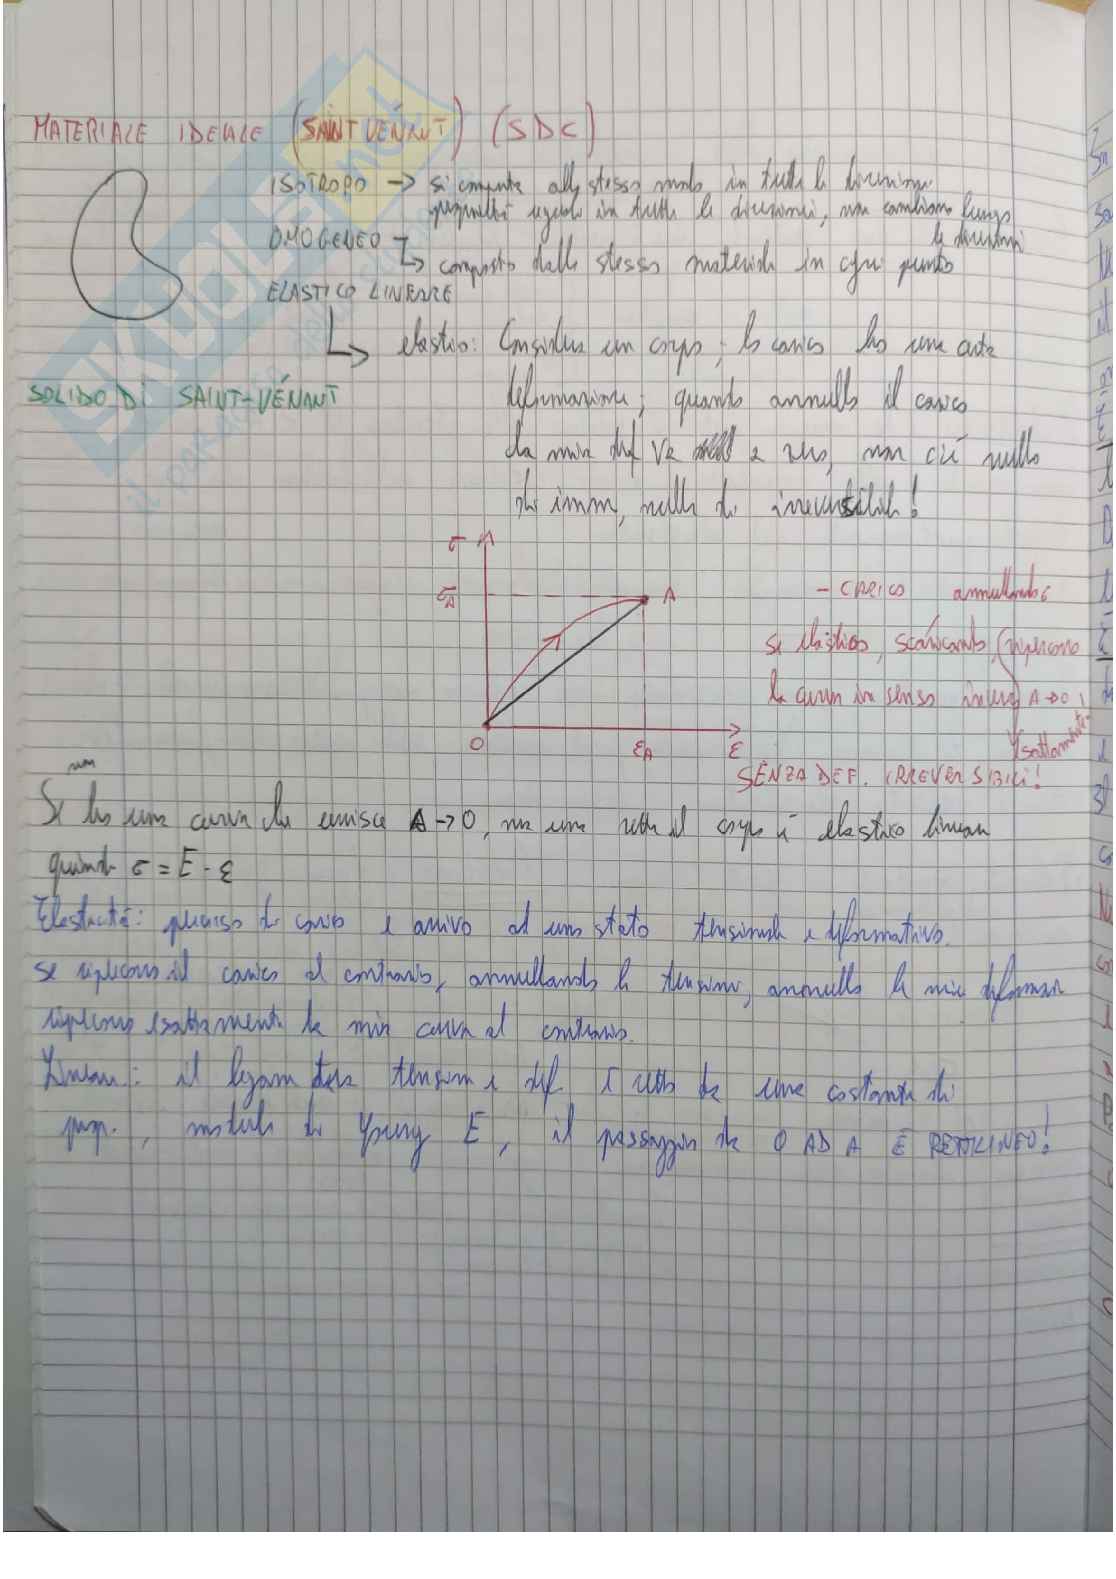 MATERIALE IDEALE (SAINT VÉNANT) (SDC)
ISOTROPO → si comporta allo stesso modo in tutte le direzioni
proprietà uguali in tutte le direzioni, non cambiano lungo
le direzioni
OMOGENEO
composto dallo stesso materiale in ogni punto
ELASTICO LINEARE
elastico: Considero un corpo, lo carico ho una certa
SOLIDO DI SAINT-VÉNANT
deformazione, quando annullo il carico
la mia def va a zero, non c'è nulla
di irreversibile!
σ
σA
A
O
εA
ε
- CARICO annullando σ
se elastico, scaricando, ripercorro
la curva in senso inverso A→O,
esattamente
SENZA DEF. IRREVERSIBILI!
non
Se ho una curva che unisce A→O, ma una retta il corpo è elastico lineare
quindi σ = E · ε
Elasticità: percorso di carico e arrivo ad uno stato tensionale e deformativo.
se ripercorro il carico al contrario, annullando le tensioni, annullo le mie deformaz
ripercorro esattamente la mia curva al contrario.
Lineare: il legame tra tensioni e def è retto da una costante di
prop., modulo di Young E, il passaggio da O AD A È RETTILINEO!
SKUOLA.net